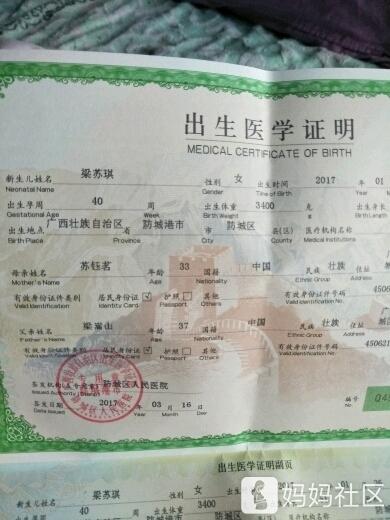 出生医学证明
MEDICAL CERTIFICATE OF BIRTH
新生儿姓名 梁苏琪 性别 女 出生时间 2017 年 01
Neonatal Name Gender Time of Birth Year
出生孕周 40 周 出生体重 3400 克 出生身长
Gestational Age Week Birth Weight g Birth Length
出生地点 广西壮族自治区 省 防城港市 市 防城区 县(区) 医疗机构名称
Birth Place Province City County Medical Institutions
母亲姓名 苏钰茗 年龄 33 国籍 中国 民族 壮族
Mother's Name Age Nationality Ethnic Group
有效身份证件类别 居民身份证 ✓ 护照 其他 有效身份证件号码
Valid Identification Identity Card Passport Others Valid Identification No.
父亲姓名 梁嵩山 年龄 37 国籍 中国 民族 壮族
Father's Name Age Nationality Ethnic Group
有效身份证件类别 居民身份证 ✓ 护照 其他 有效身份证件号码 45062
Valid Identification Identity Card Passport Others Valid Identification No.
签发机构(专用章) 防城区人民医院
Issued Authority
签发日期 2017 年 03 月 16 日 编号
Date Issued Year Month Day
出生医学证明副页
新生儿姓名 梁苏琪 性别 女 2017 年 01
3400
妈妈社区